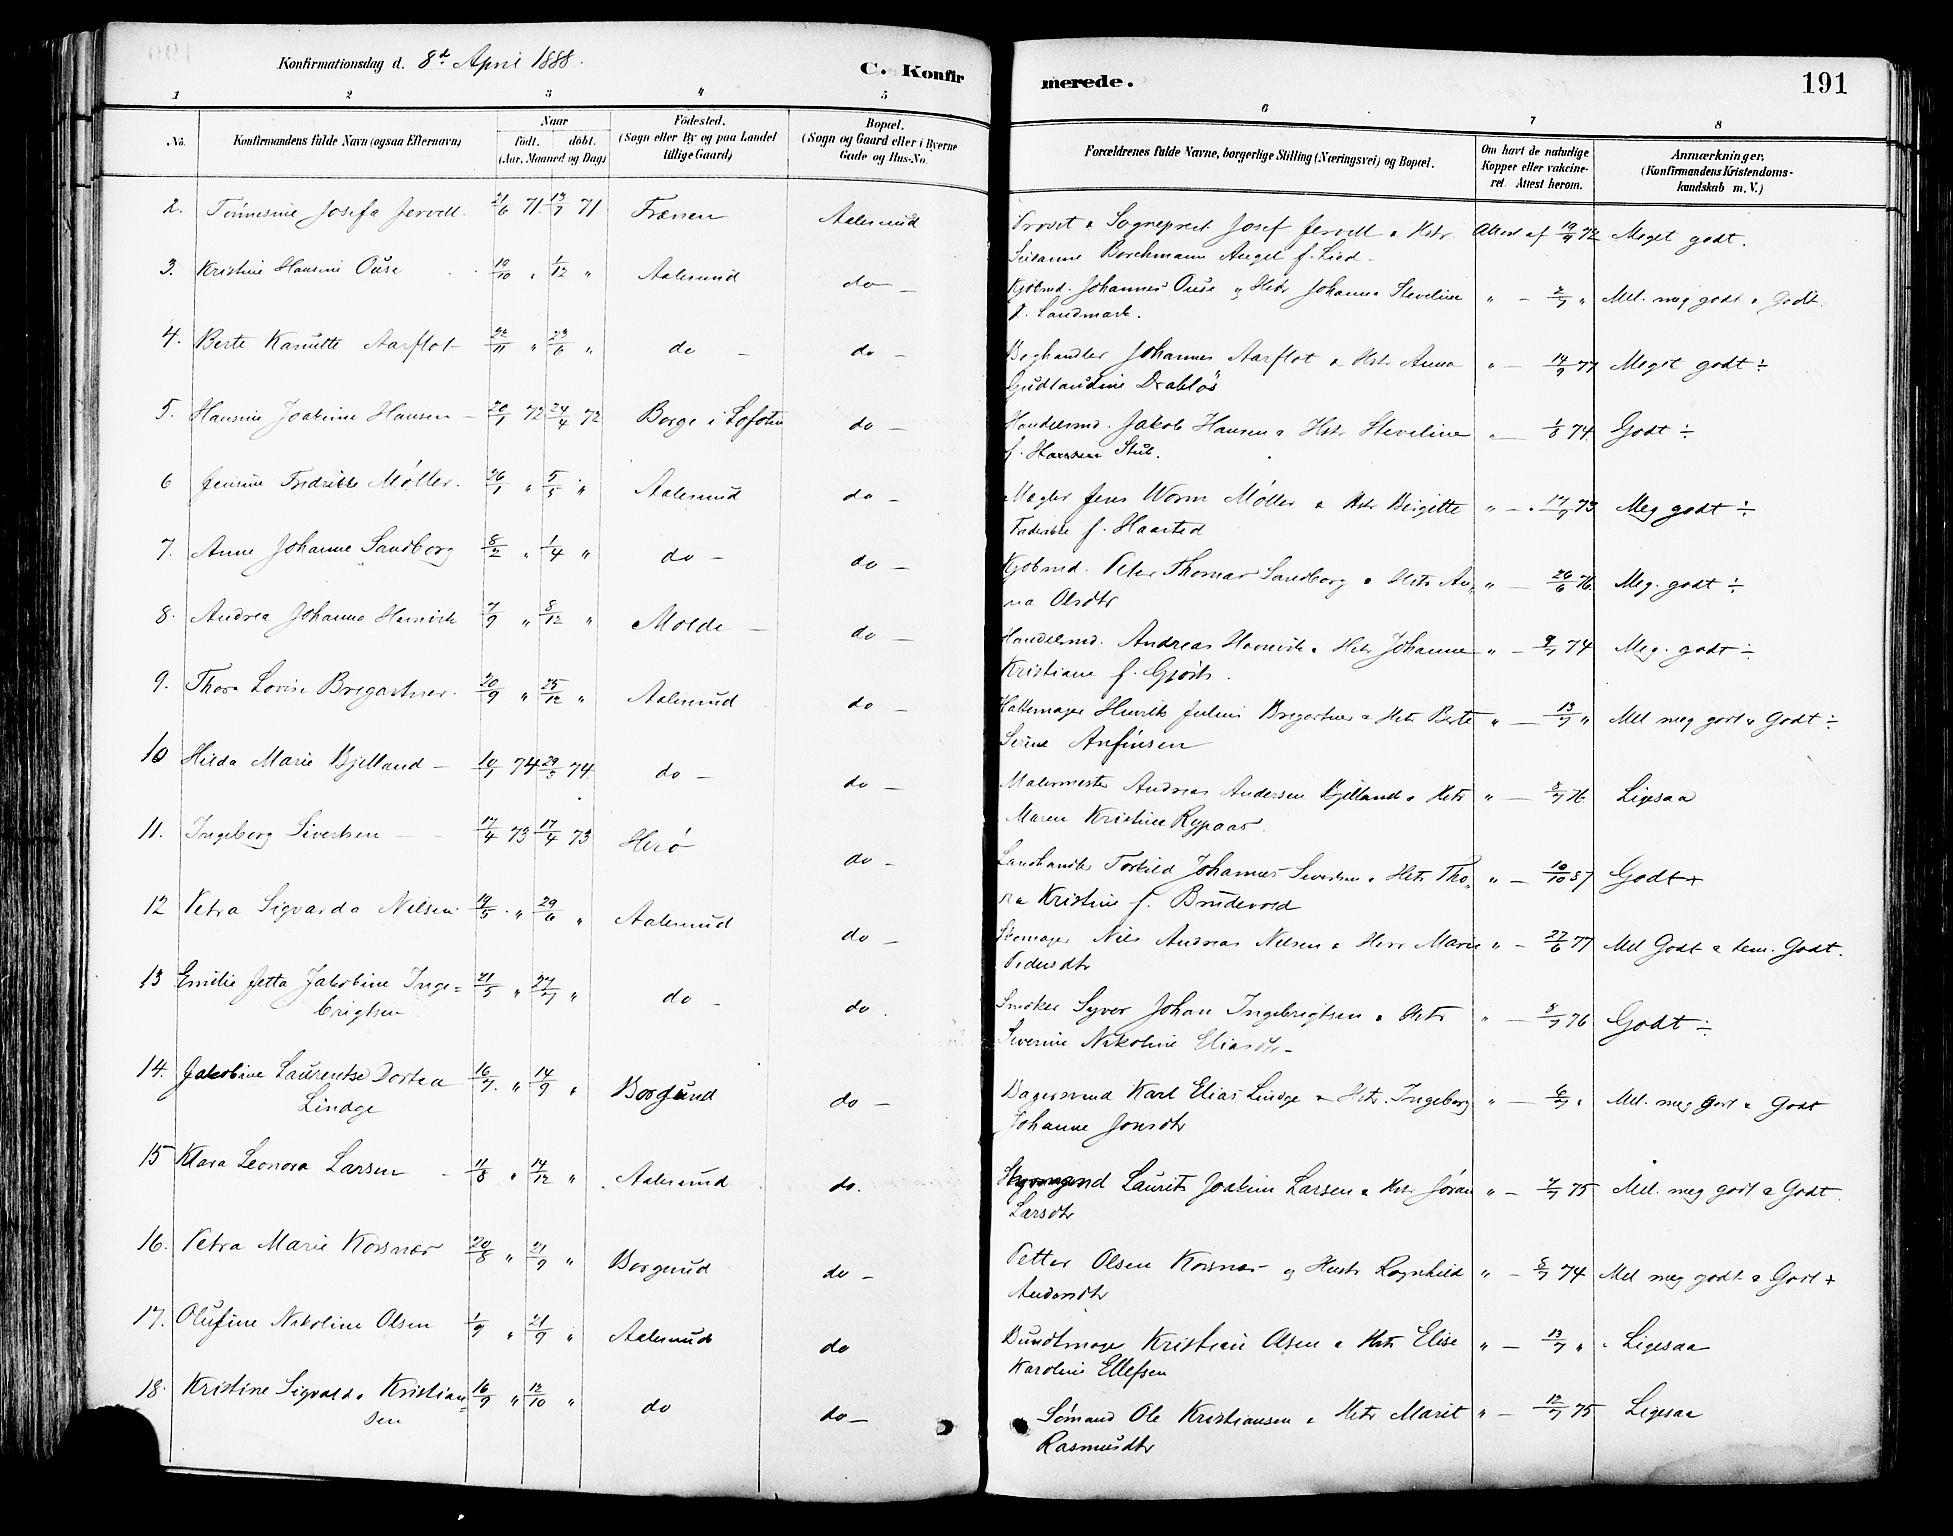 Konfirmationsdag d. 8de April 1888.
C. Konfir
merede.
191
1 2 3 4 5
6 7 8
No.
Konfirmandens fulde Navn (ogsaa Efternavn)
Naar
født. døbt.
(Aar, Maaned og Dag)
Fødested.
(Sogn eller By og paa Landet
tillige Gaard)
Bopæl.
(Sogn og Gaard eller i Byerne
Gade og Hus-No.
Forældrenes fulde Navne, borgerlige Stilling (Næringsvei) og Bopæl.
Om havt de naturlige
Kopper eller vakcine-
ret. Attest herom.
Anmærkninger.
(Konfirmandens Kristendoms-
kundskab m. V.)
2. Tønnesine Josefa Jervell. 21/6 71. 13/7 71 Frænen Aalesund
Provst & Sogneprest Josef Jervell & Hstr Attest af 19/9 72 Meget godt.
Susanne Borchmann Angel f. Lied
3. Kristine Hansine Ouse 19/10 " 1/12 " Aalesund do
Kjøbmd. Johannes Ouse og Hstr Johanne Steveline " 2/7 " Mel. meg godt & Godt
f. Landmark.
4. Berte Kanutte Aarflot 22/11 " 23/6 " do do
Boghandler Johannes Aarflot & Hstr Anna " 14/9 77 Meget godt ÷
Gudlaudine Drabløs
5. Hansine Joakime Hansen 20/1 72 24/4 72 Borge i Lofoten do
Handelsmd. Jakob Hansen & Hstr Steveline " 1/8 74 Godt ÷
f. Hansen Stub.
6 Jensine Fredrikke Møller. 26/1 " 5/5 " Aalesund do
Mægler Jens Worm Møller & Hstr Birgitte " 17/7 73 Meg godt ÷
Frederikke f. Haarsted
7. Anne Johanne Sandborg 8/2 " 1/4 " do do
Kjøbmd. Peter Thomas Sandborg & Hstr An- " 26/6 76. Meg. godt ÷
na Olsdtr
8. Andrea Johanna 7/9 " 8/12 " Molde do
Handelsmd. Andreas & Hstr Johanne " 9/7 74 Meg. godt ÷
Kristiane f.
9. Thora Lovise Bregartner. 20/9 " 25/12 " Aalesund do
Hattemager Henrik Julius Bregartner & Hstr Berte " 13/7 " Mel meg godt & Godt ÷
Serine Anfinsen
10 Hilda Marie Bjelland 10/1 74 29/3 74 do do
Malermester Andreas Andersen Bjelland & Hstr " 3/7 76 Ligesaa
Maren Kristine Rypaas.
11. Ingeborg Sivertsen 17/4 73 17/4 73 Herø do
Landhandler Torkild Johannes Sivertsen & Hstr Tho- " 10/10 87 Godt +
ra Kristine f. Brudevold
12 Petra Sigvarda Nilsen 19/5 " 29/6 " Aalesund do
Skomager Nils Andreas Nilsen & Hstr Marie " 27/6 77 Mel Godt & tem. Godt.
Pedersdtr
13 Emilie Jetta Jakobine Inge- 21/5 " 27/7 " do do
brigtsen
Snedker Syver Johan Ingebrigtsen & Hstr " 8/7 76 Godt ÷
Severine Nikoline Eliasdtr
14. Jakobine Laurentse Dortea 16/7. " 14/9 " Borgund do
Lindge
Bagersvend Karl Elias Lindge & Hstr. Ingeborg " 6/7 " Mel. meg godt & Godt
Johanne Jonsdtr
15 Klara Leonora Larsen 11/8 " 14/12 " Aalesund do.
Styrmand Laurits Joakim Larsen & Hstr Jøran " 7/7 75 Mel. meg godt & Godt.
Larsdtr
16. Petra Marie Korsnær 20/8 " 21/9 " Borgund do
Petter Olsen Korsnær og Hustr Ragnhild " 5/7 74 Mel meg godt & Godt +
Andersdtr
17. Olufine Nikoline Olsen 1/9 " 21/9 " Aalesund do
Bundtmager Kristian Olsen & Hstr Elise " 13/7 " Ligesaa
Karoline Ellefsen
18. Kristine Sigvalda Kristian- 16/9 " 12/10 " do do
sen
Sømand Ole Kristiansen & Hstr Marit " 12/7 75 Ligesaa
Rasmusdtr